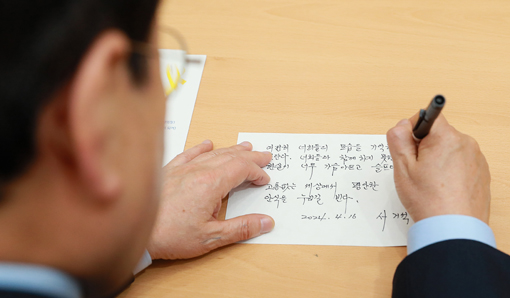 여전히 너희들의 모습을 기억
한다. 너희들과 함께 하지 못한
현실이 너무 가슴아프고 슬프
고통없는 세상에서 평안한
안식을 누리길 빈다.
2024. 4. 16 서거석